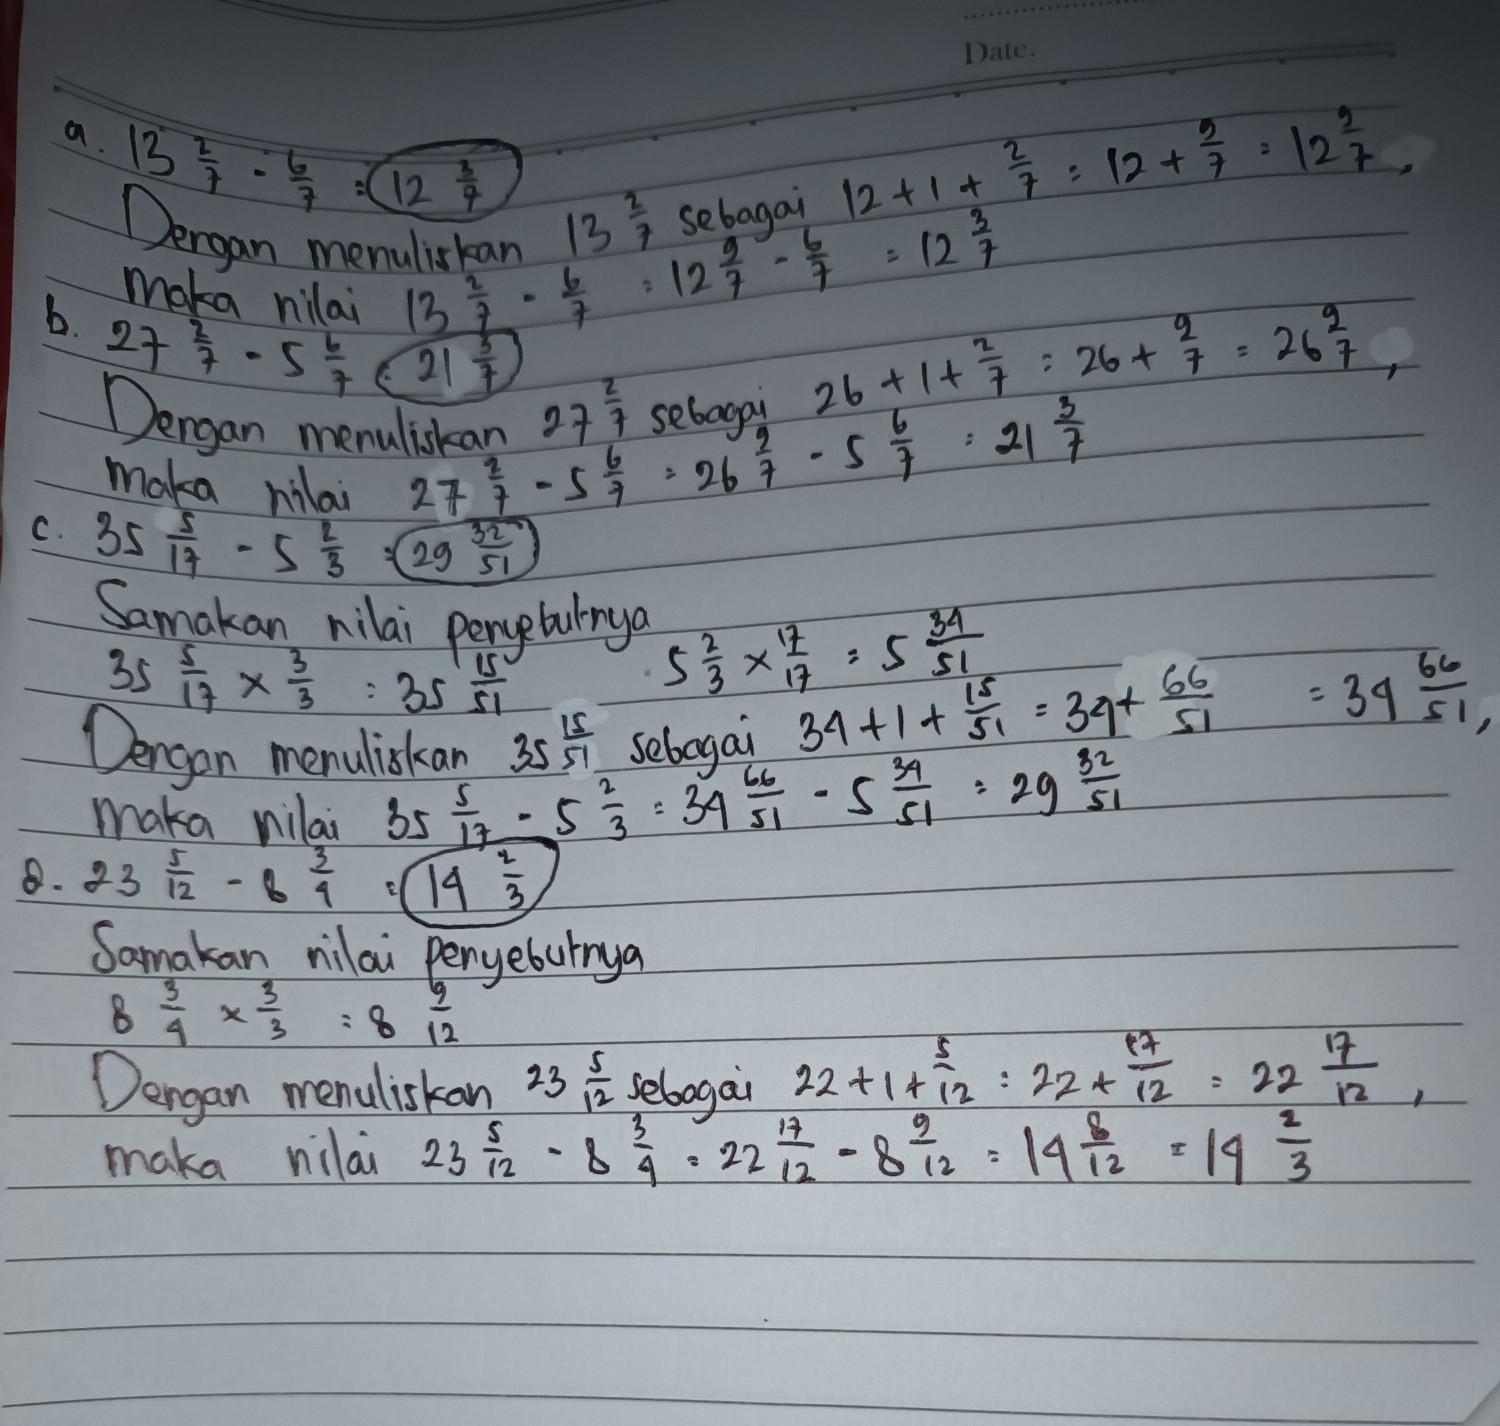 Date.
a. 13 2/7 - 6/7 = 12 3/7
Dengan menuliskan 13 2/7 sebagai 12 + 1 + 2/7 = 12 + 9/7 = 12 9/7,
maka nilai 13 2/7 - 6/7 = 12 9/7 - 6/7 = 12 3/7
b. 27 2/7 - 5 6/7 = 21 3/7
Dengan menuliskan 27 2/7 sebagai 26 + 1 + 2/7 = 26 + 9/7 = 26 9/7,
maka nilai 27 2/7 - 5 6/7 = 26 9/7 - 5 6/7 = 21 3/7
c. 35 5/17 - 5 2/3 = 29 32/51
Samakan nilai penyebutnya
35 5/17 x 3/3 = 35 15/51 5 2/3 x 17/17 = 5 34/51
Dengan menuliskan 35 15/51 sebagai 34 + 1 + 15/51 = 34 + 66/51 = 34 66/51,
maka nilai 35 5/17 - 5 2/3 = 34 66/51 - 5 34/51 = 29 32/51
d. 23 5/12 - 8 3/4 = 14 2/3
Samakan nilai penyebutnya
8 3/4 x 3/3 = 8 9/12
Dengan menuliskan 23 5/12 sebagai 22 + 1 + 5/12 = 22 + 17/12 = 22 17/12,
maka nilai 23 5/12 - 8 3/4 = 22 17/12 - 8 9/12 = 14 8/12 = 14 2/3